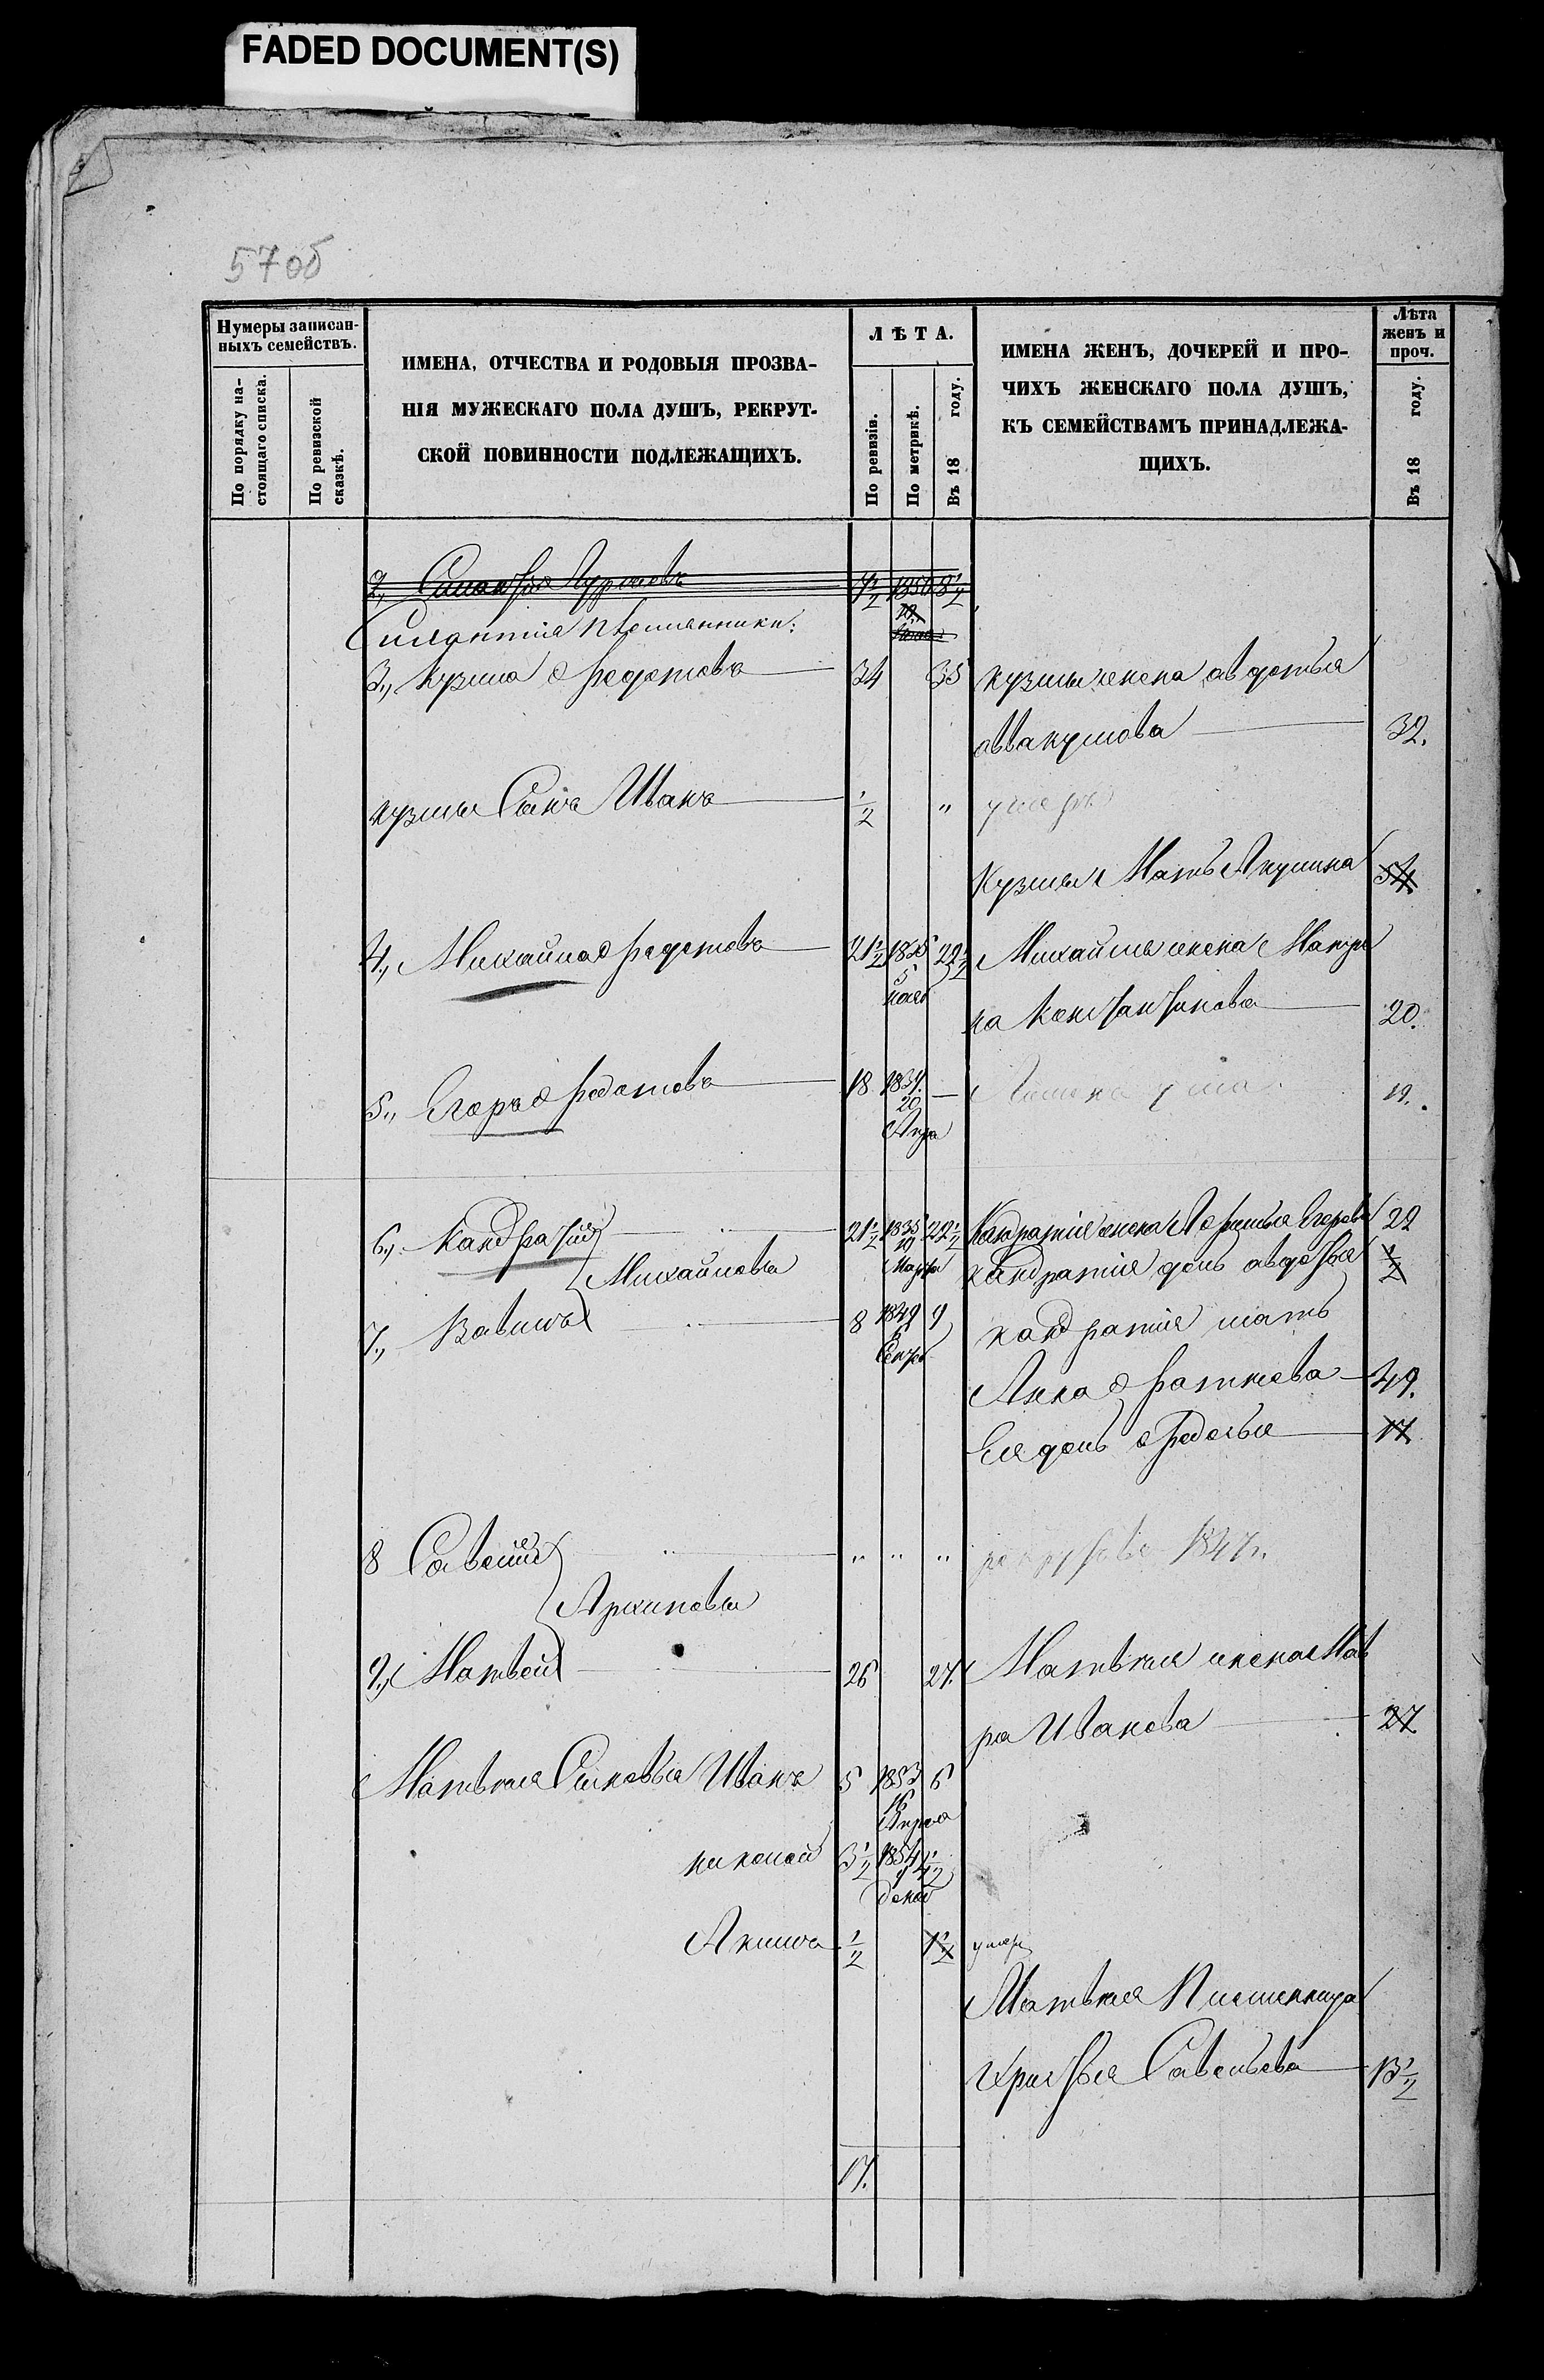 FADED DOCUMENT(S)
57об
Нумеры записан-
ныхъ семействъ.
По порядку на-
стоящаго списка.
По ревизской
сказкѣ.
ИМЕНА, ОТЧЕСТВА И РОДОВЫЯ ПРОЗВА-
НІЯ МУЖЕСКАГО ПОЛА ДУШЪ, РЕКРУТ-
СКОЙ ПОВИННОСТИ ПОДЛЕЖАЩИХЪ.
ЛѢТА.
По ревизіи.
По метрикѣ.
Въ 18 году.
ИМЕНА ЖЕНЪ, ДОЧЕРЕЙ И ПРО-
ЧИХЪ ЖЕНСКАГО ПОЛА ДУШЪ,
КЪ СЕМЕЙСТВАМЪ ПРИНАДЛЕЖА-
ЩИХЪ.
Лѣта
женъ и
проч.
Въ 18 году.
2, 7½ 1850 8½
Силантія племянники:
3., Кузма Федотовъ 34 35 Кузмы жена авдотья
аввакумова 32.
кузмы Сынъ Иванъ ½ " умеръ
Кузмы Мать Акулина 54
4., Михайла Федотовъ 21½ 1835 22½ Михайлы жена Матре
5
нояб
на Константинова 20.
5., Егоръ Федотовъ 18 1839. — 19.
20
Апр
6., Кандратій 21½ 1835 22½ Кандратія жена Афимья Егорова 22
Марта
Михайловы кандратія дочь авдотья ½
7., Вавилъ 8 1849 9 кандратія мать
Сентяб
Анна 49.
Ея дочь Федосья 17
8 Савелій " " " рекрутъ въ 1847г.
Архиповы
9., Матвей 26 27. Матвея жена Мав
ра Иванова 27
Матвея Сыновья Иванъ 5 1853 6
16
Апреля
николай 3½ 1854 4½
9
декаб
Акимъ ½ 1½ умеръ
Матвея Племянница
Савельева 13½
17.